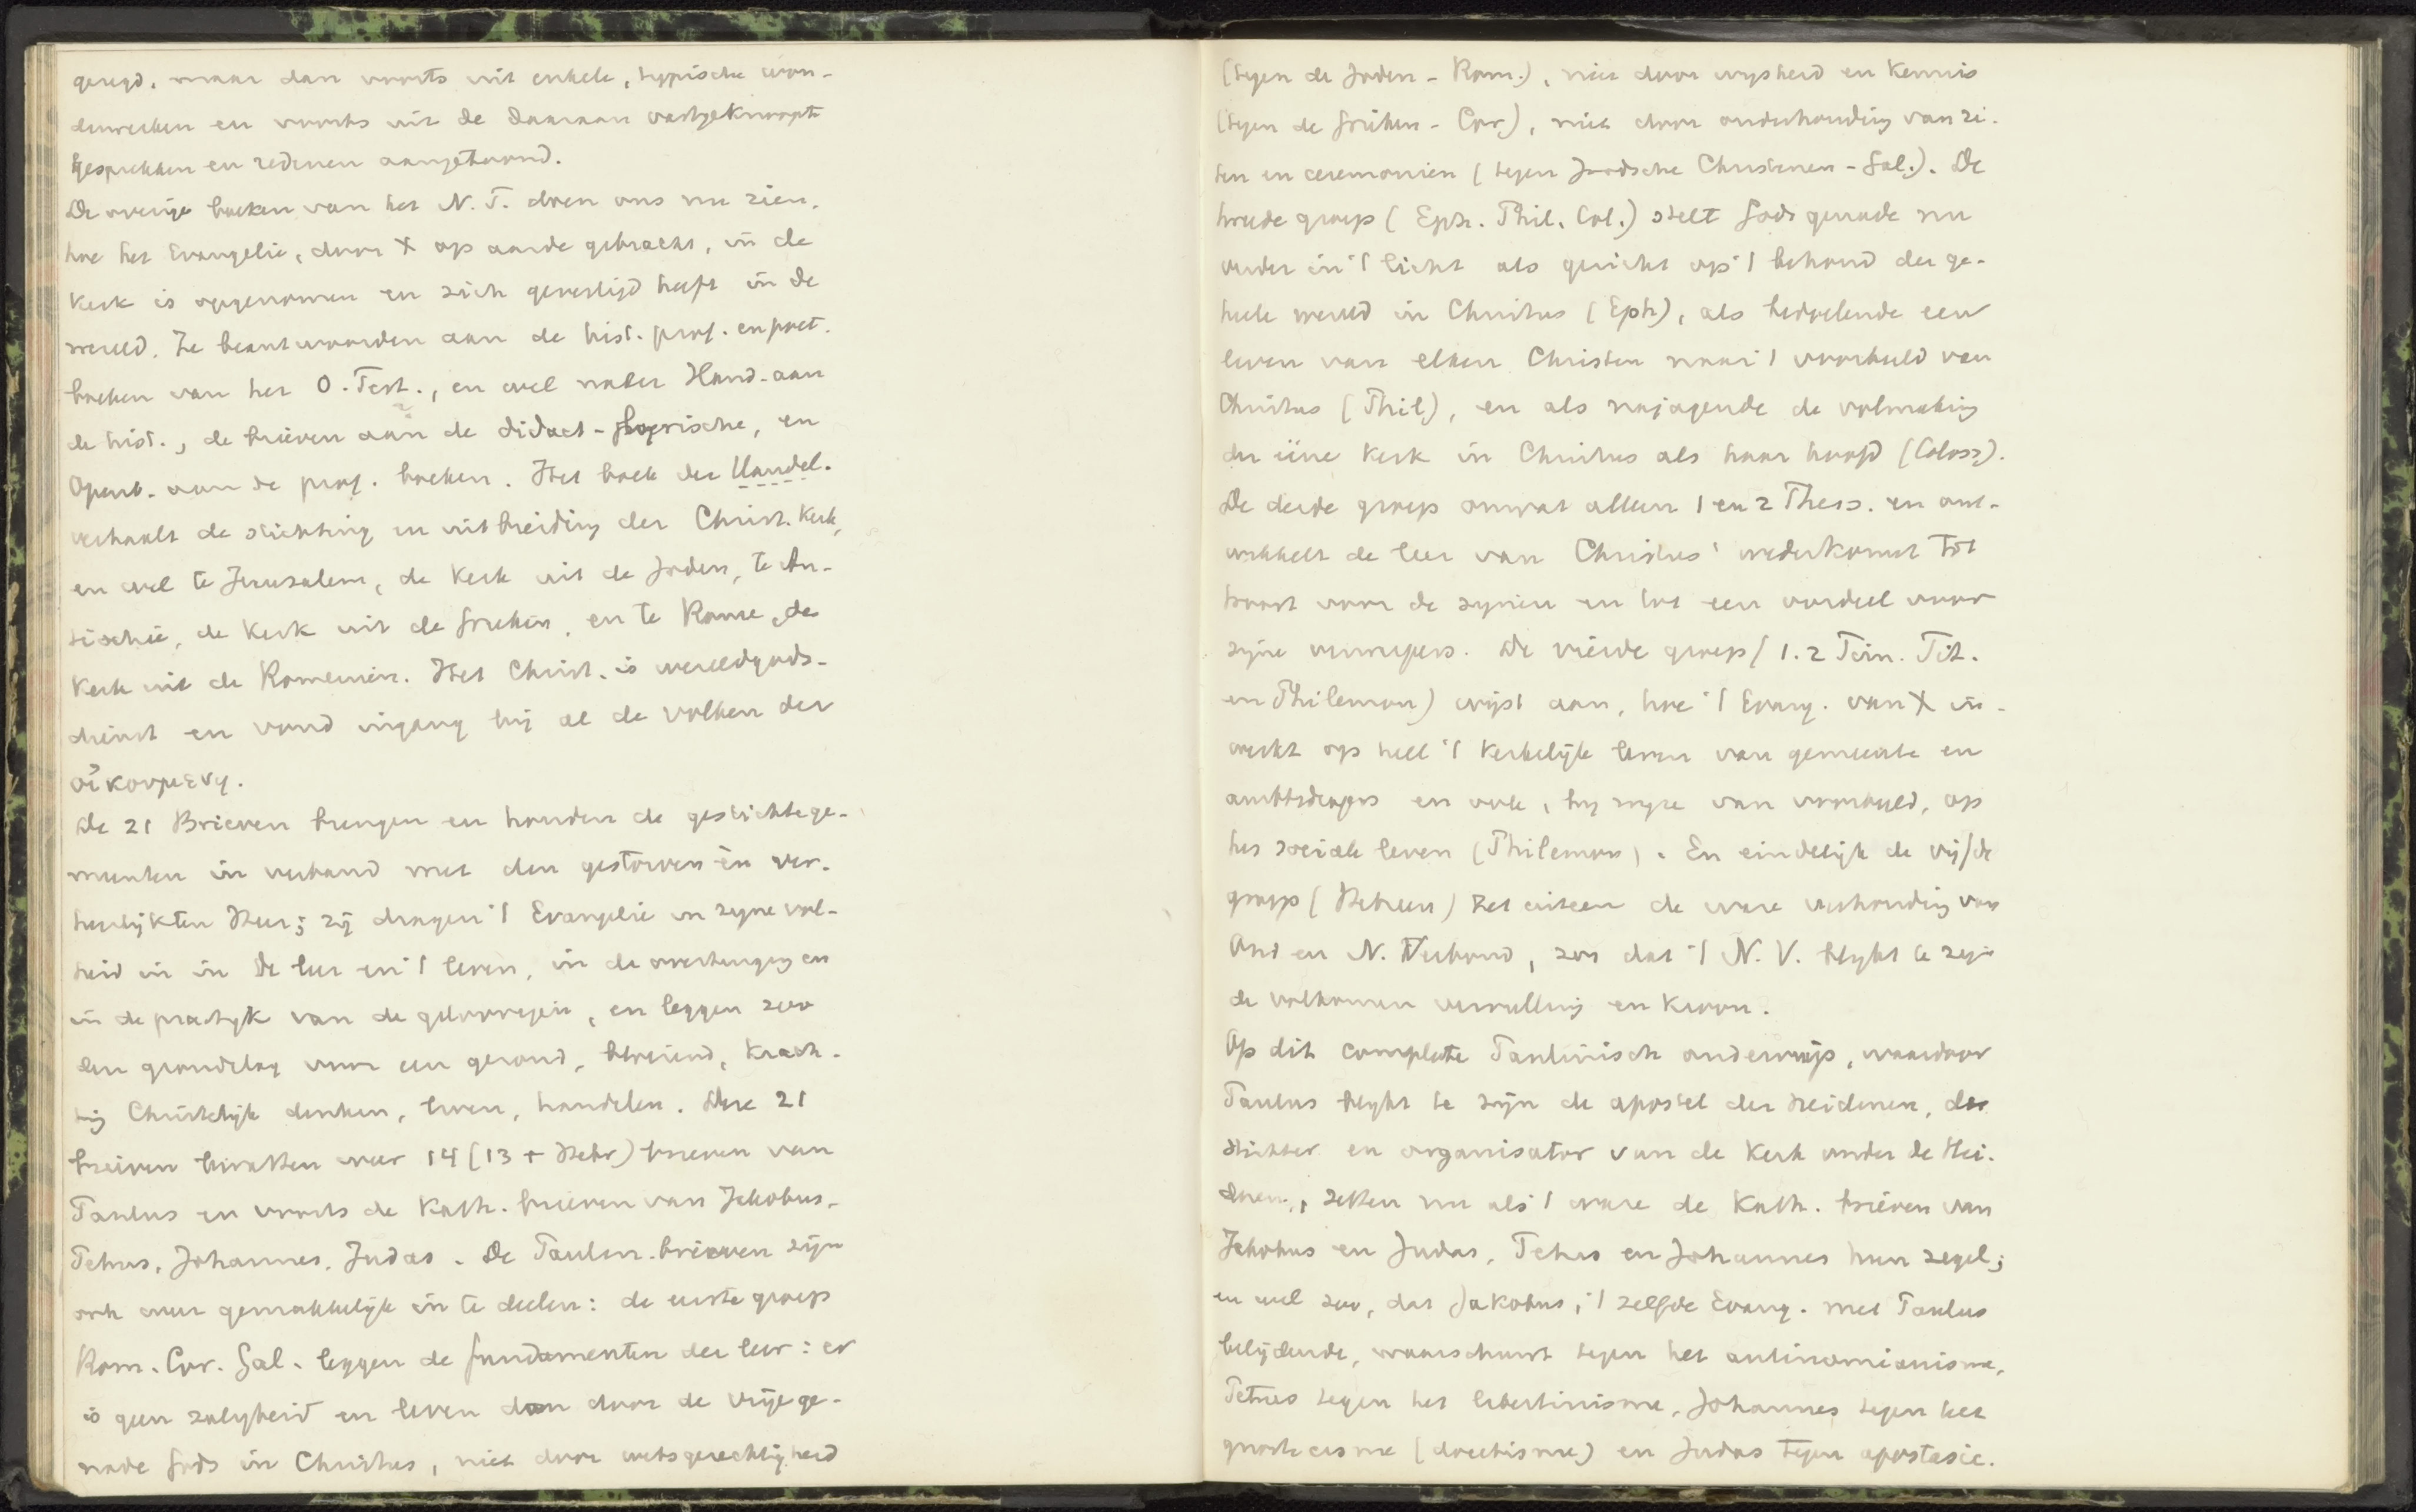 gezegd, maar dan voorts uit enkele, typische won-
derwerken en voorts uit de daaraan vastgeknoopte
gesprekken en redenen aangetoond.
De overige boeken van het N. T. doen ons nu zien,
hoe het Evangelie, door X op aarde gebracht, in de
Kerk is opgenomen en zich gevestigd heeft in de
wereld. Ze beantwoorden aan de hist. prof. en poet.
boeken van het O. Test., en wel nader Hand. aan
de hist., de brieven aan de didact-poetische, en
Openb. aan de prof. boeken. Het boek der Handel.
verhaalt de stichting en uitbreiding der Christ. Kerk,
en wel te Jeruzalem, de Kerk uit de Joden, te An-
tiochie, de Kerk uit de Grieken, en te Rome, de
Kerk uit de Romeinen. Het Christ. is wereldgods-
dienst en vond ingang bij al de volken der
οἰκουμενη.
De 21 Brieven brengen en houden de gestichte ge-
meenten in verband met den gestorven èn ver-
heerlijkten Heer; zij dragen 't Evangelie in zijne vol-
heid in in de leer en 't leven, in de overtuiging en
in de practijk van de geloovigen, en leggen zoo
den grondslag voor een gezond, bloeiend, krach-
tig Christelijk denken, leven, handelen. Deze 21
brieven bevatten weer 14 (13 + Hebr) brieven van
Paulus en voorts de Kath. brieven van Jakobus,
Petrus, Johannes, Judas. De Paulin. brieven zijn
ook weer gemakkelijk in te deelen: de eerste groep
Rom. Cor. Gal. leggen de fundamenten der leer: er
is geen zaligheid en leven dan door de vrije ge-
nade Gods in Christus, niet door wetsgerechtigheid
(tegen de Joden - Rom.), niet door wijsheid en Kennis
(tegen de Grieken - Cor), niet door onderhouding van ri-
ten en ceremonien (tegen Joodsche Christenen - Gal.). De
tweede groep (Eph. Phil. Col.) stelt Gods genade nu
verder in 't licht als gericht op 't behoud der ge-
heele wereld in Christus (Eph), als bedoelende een
leven van elken Christen naar 't voorbeeld van
Christus (Phil), en als najagende de volmaking
der ééne Kerk in Christus als haar hoofd (Coloss).
De derde groep omvat alleen 1 en 2 Thess. en ont-
wikkelt de leer van Christus' wederkomst tot
troost voor de zijnen en tot een oordeel voor
zijne verwerpers. De vierde groep (1. 2 Tim. Tit.
en Philemon) wijst aan, hoe 't Evang. van X in-
werkt op heel 't Kerkelijke leven van gemeente en
ambtsdragers en ook, bij wijze van voorbeeld, op
het sociale leven (Philemon). En eindelijk de vijfde
groep (Hebreen) zet uiteen de ware verhouding van
Oud en N. Verbond, zoo dat 't N. V. blijkt te zijn
de volkomen vervulling en Kroon.
Op dit complete Paulinisch onderwijs, waardoor
Paulus blijkt te zijn de apostel der Heidenen, der
stichter en organisator van de Kerk onder de Hei-
denen, zetten nu als 't ware de Kath. brieven van
Jakobus en Judas, Petrus en Johannes hun zegel;
en wel zoo, dat Jakobus, 't zelfde Evang. met Paulus
belijdende, waarschuwt tegen het antinomianisme,
Petrus tegen het libertinisme, Johannes tegen het
gnosticisme (docetisme) en Judas tegen apostasie.